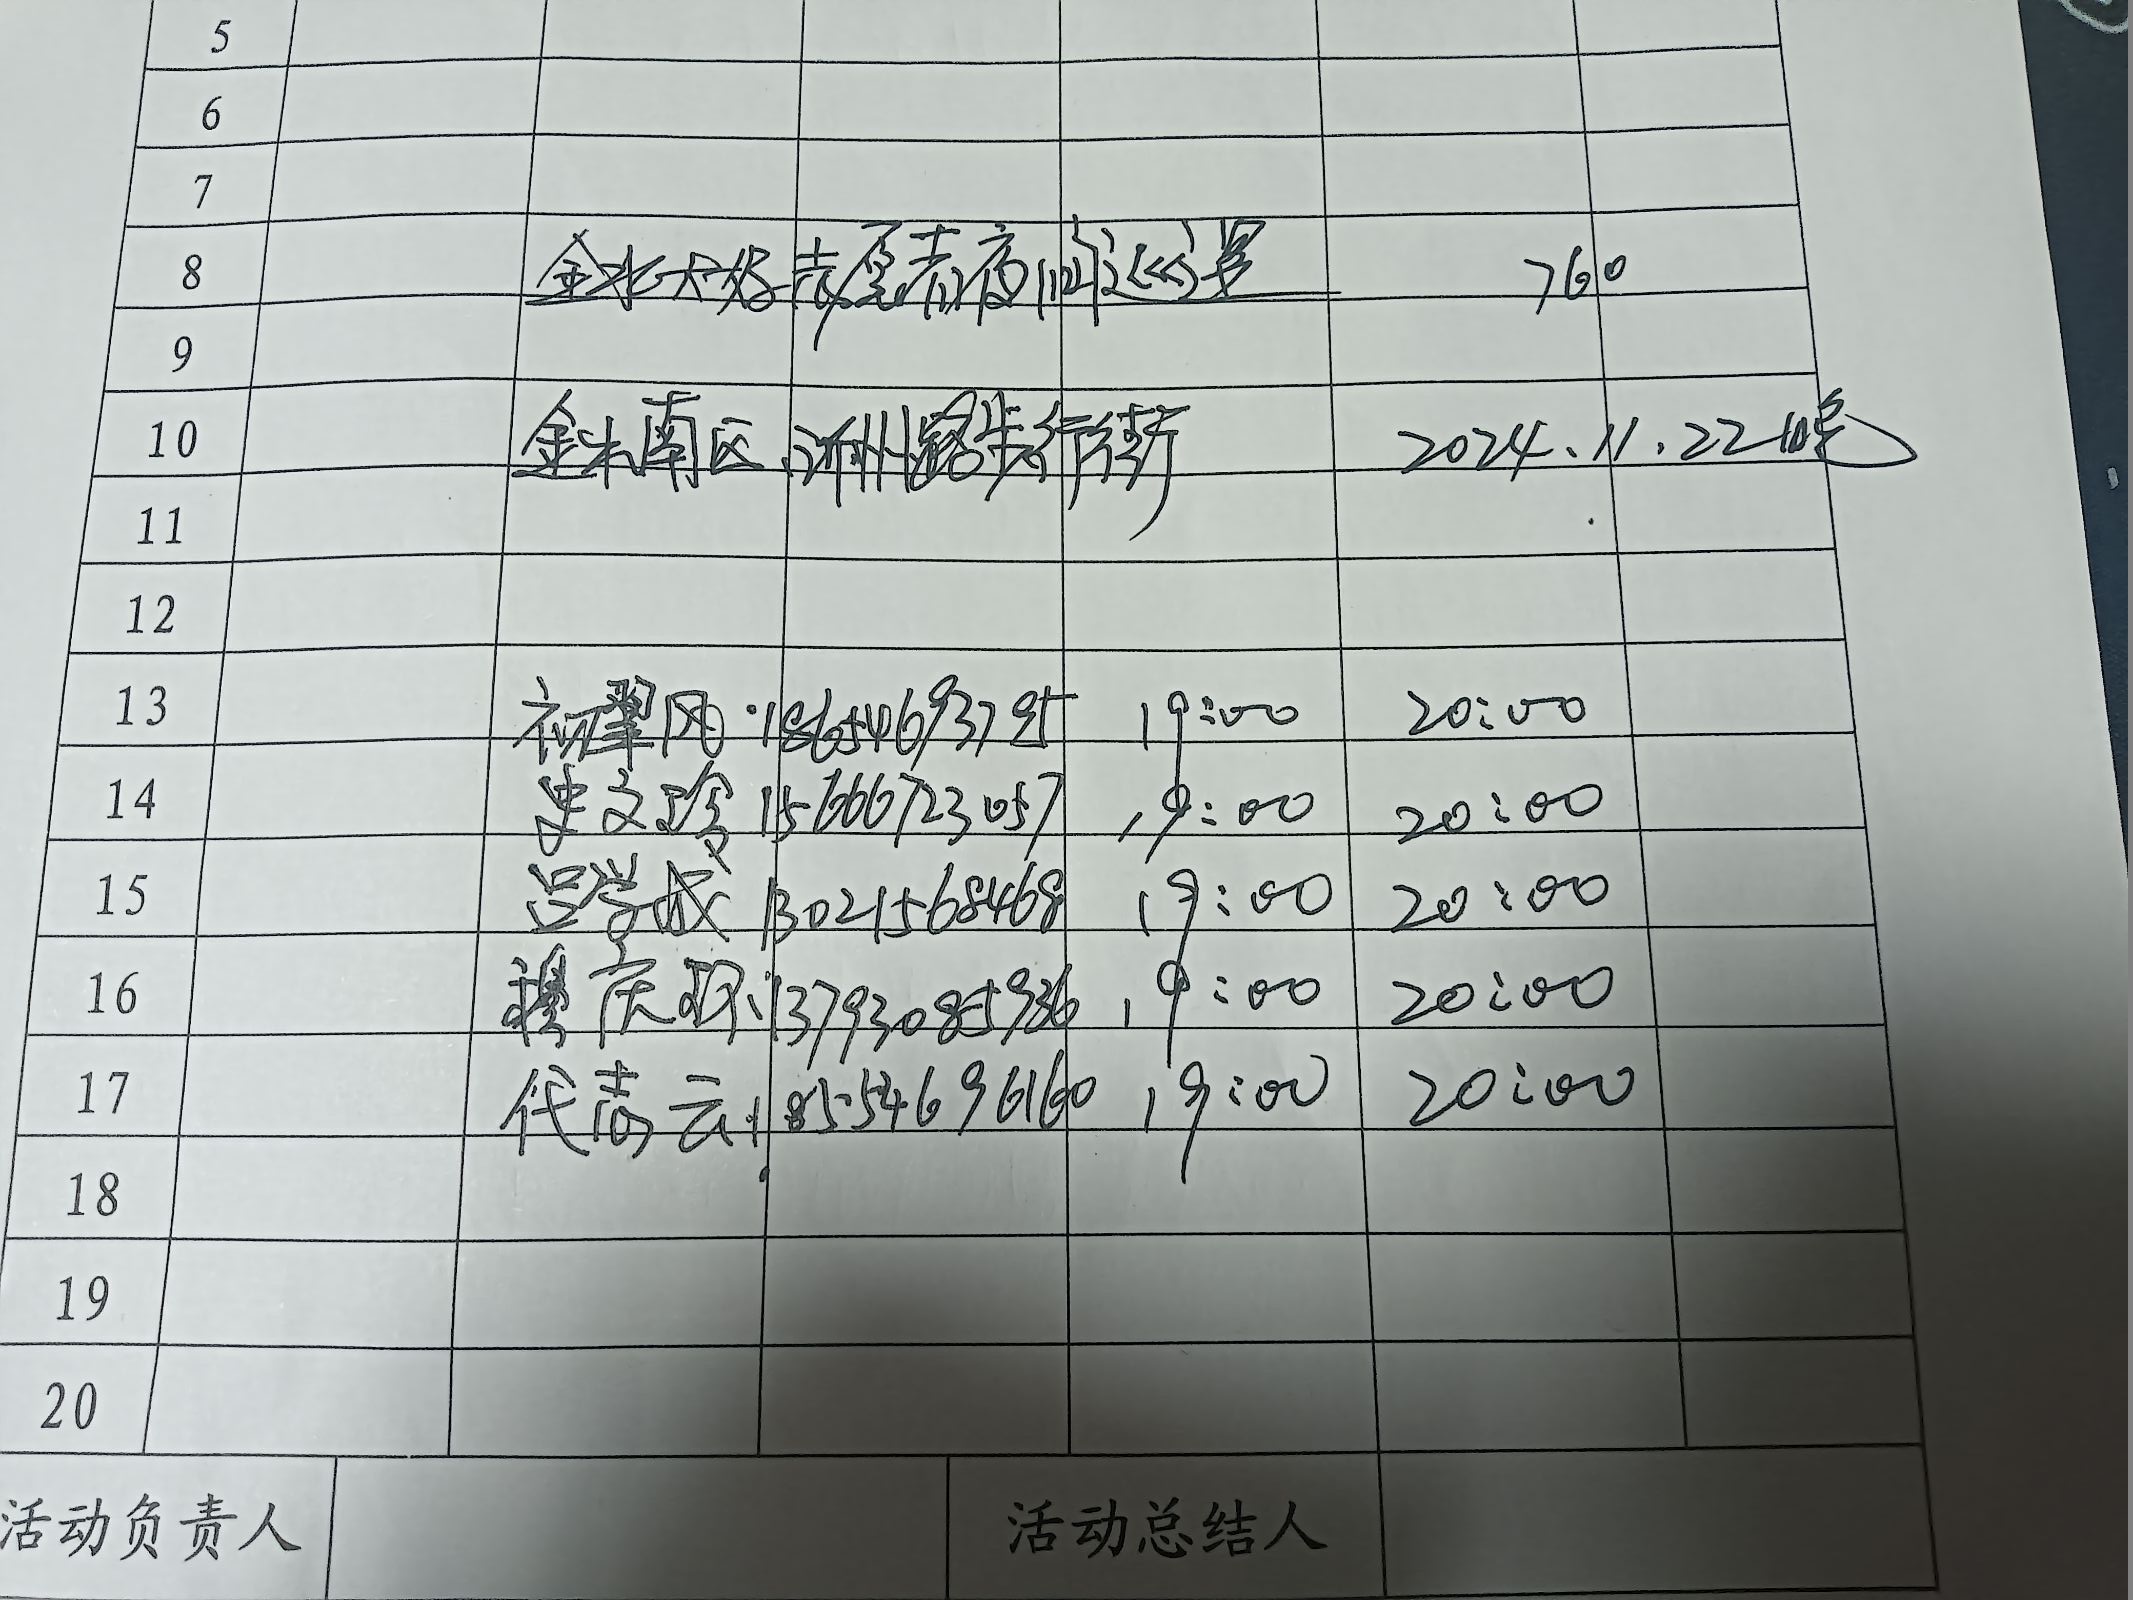 5
6
7
8 金水大好志愿者夜间巡逻 760
9
10 金水南区 沂州路步行街 2024.11.22
11
12
13 初翠风 18654693795 19:00 20:00
14 史文珍 15666723057 19:00 20:00
15 吕学成 13021568468 19:00 20:00
16 穆庆双 13793085936 19:00 20:00
17 代志云 18554696160 19:00 20:00
18
19
20
活动负责人 活动总结人